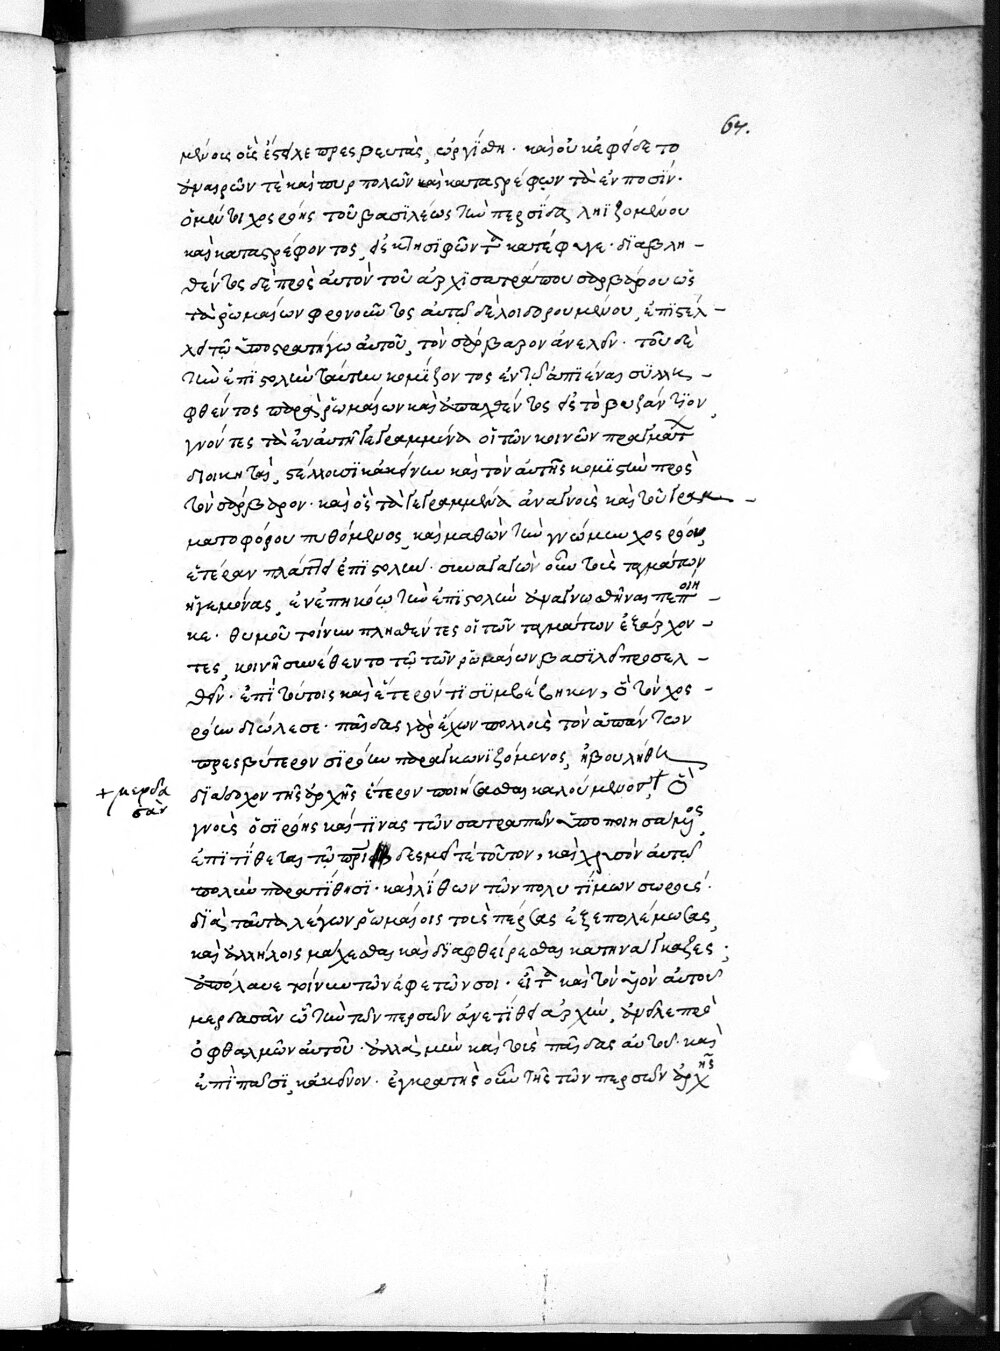 67.
μένοις οἷς ἔστειλε πρεσβευτὰς, ὠργίσθη· καὶ οὐκ ἐφείδετο
ἀναιρῶν τὲ καὶ πυρπολῶν καὶ καταστρέφων τὰ ἐν ποσίν·
ὁ μέντοι χοσρόης τοῦ βασιλέως τὴν περσίδα ληϊζομένου
καὶ καταστρέφοντος, εἰς κτησιφῶντα κατέφυγε· διαβλη-
θέντος δὲ πρὸς αὐτὸν τοῦ ἀρχισατράπου σαρβάρου ὡς
τὰ ῥωμαίων φρονοῦντος αὐτῷ δὲ λοιδορουμένου, ἐπιστέλ-
λει τῷ ὑποστρατήγῳ αὐτοῦ, τὸν σάρβαρον ἀνελεῖν· τοῦ δὲ
τὴν ἐπιστολὴν ταύτην κομίζοντος ἐν τῷ ἀπιέναι συλλη-
φθέντος παρὰ ῥωμαίων καὶ ἀπαχθέντος εἰς τὸ βυζάντιον,
γνόντες τὰ ἐν αὐτῇ γεγραμμένα οἱ τῶν κοινῶν πραγμάτ
διοικηταὶ, στέλλουσι κἀκείνην καὶ τὸν αὐτῆς κομιστὴν πρὸς
τὸν σάρβαρον· καὶ ὃς τὰ γεγραμμένα ἀναγνοὺς καὶ τοῦ γραμ-
ματοφόρου πυθόμενος, καὶ μαθὼν τὴν γνώμην χοσρόου,
ἑτέραν πλάττει ἐπιστολήν· συναγαγὼν οὖν τοὺς ταγμάτων
ἡγεμόνας, ἐν ἐπηκόῳ τὴν ἐπιστολὴν ἀναγνωσθῆναι πεποίη-
κε· θυμοῦ τοίνυν πλησθέντες οἱ τῶν ταγμάτων ἐξάρχον-
τες, κοινῇ συνέθεντο τῷ τῶν ῥωμαίων βασιλεῖ προσελ-
θεῖν· ἐπὶ τούτοις καὶ ἕτερόν τι συμβέβηκεν, ὃ τὸν χοσ-
ρόην διώλεσε· παῖδας γὰρ ἔχων πολλοὺς τὸν ἁπάντων
πρεσβύτερον σιρόην παραγκωνιζόμενος, ἠβουλήθη
διάδοχον τῆς ἀρχῆς ἕτερον ποιήσασθαι καλούμενον + ὃ
+ μερδα
σὰν
γνοὺς ὁ σιρόης καί τινας τῶν σατραπῶν ὑποποιησάμενος,
ἐπιτίθεται τῷ πατρὶ δεσμεῖ τὲ τοῦτον, καὶ χρυσὸν αὐτῷ
πολὺν παρατίθησι· καὶ λίθων τῶν πολυτίμων σωρούς·
διὰ ταῦτα λέγων ῥωμαίοις τοὺς πέρσας ἐξεπολέμωσας,
καὶ ἀλλήλοις μάχεσθαι καὶ διαφθείρεσθαι κατηνάγκαζες·
ἀπόλαυε τοίνυν τῶν ἐφετῶν σοι· εἶτα καὶ τὸν υἱὸν αὐτοῦ
μερδασὰν ᾧ τὴν τῶν περσῶν ἀνετίθει ἀρχὴν, ἀνεῖλε πρὸ
ὀφθαλμῶν αὐτοῦ· ἀλλὰ μὴν καὶ τοὺς παῖδας αὐτοῦ· καὶ
ἐπὶ πᾶσι, κἀκεῖνον· ἐγκρατὴς οὖν τῆς τῶν περσῶν ἀρχῆς